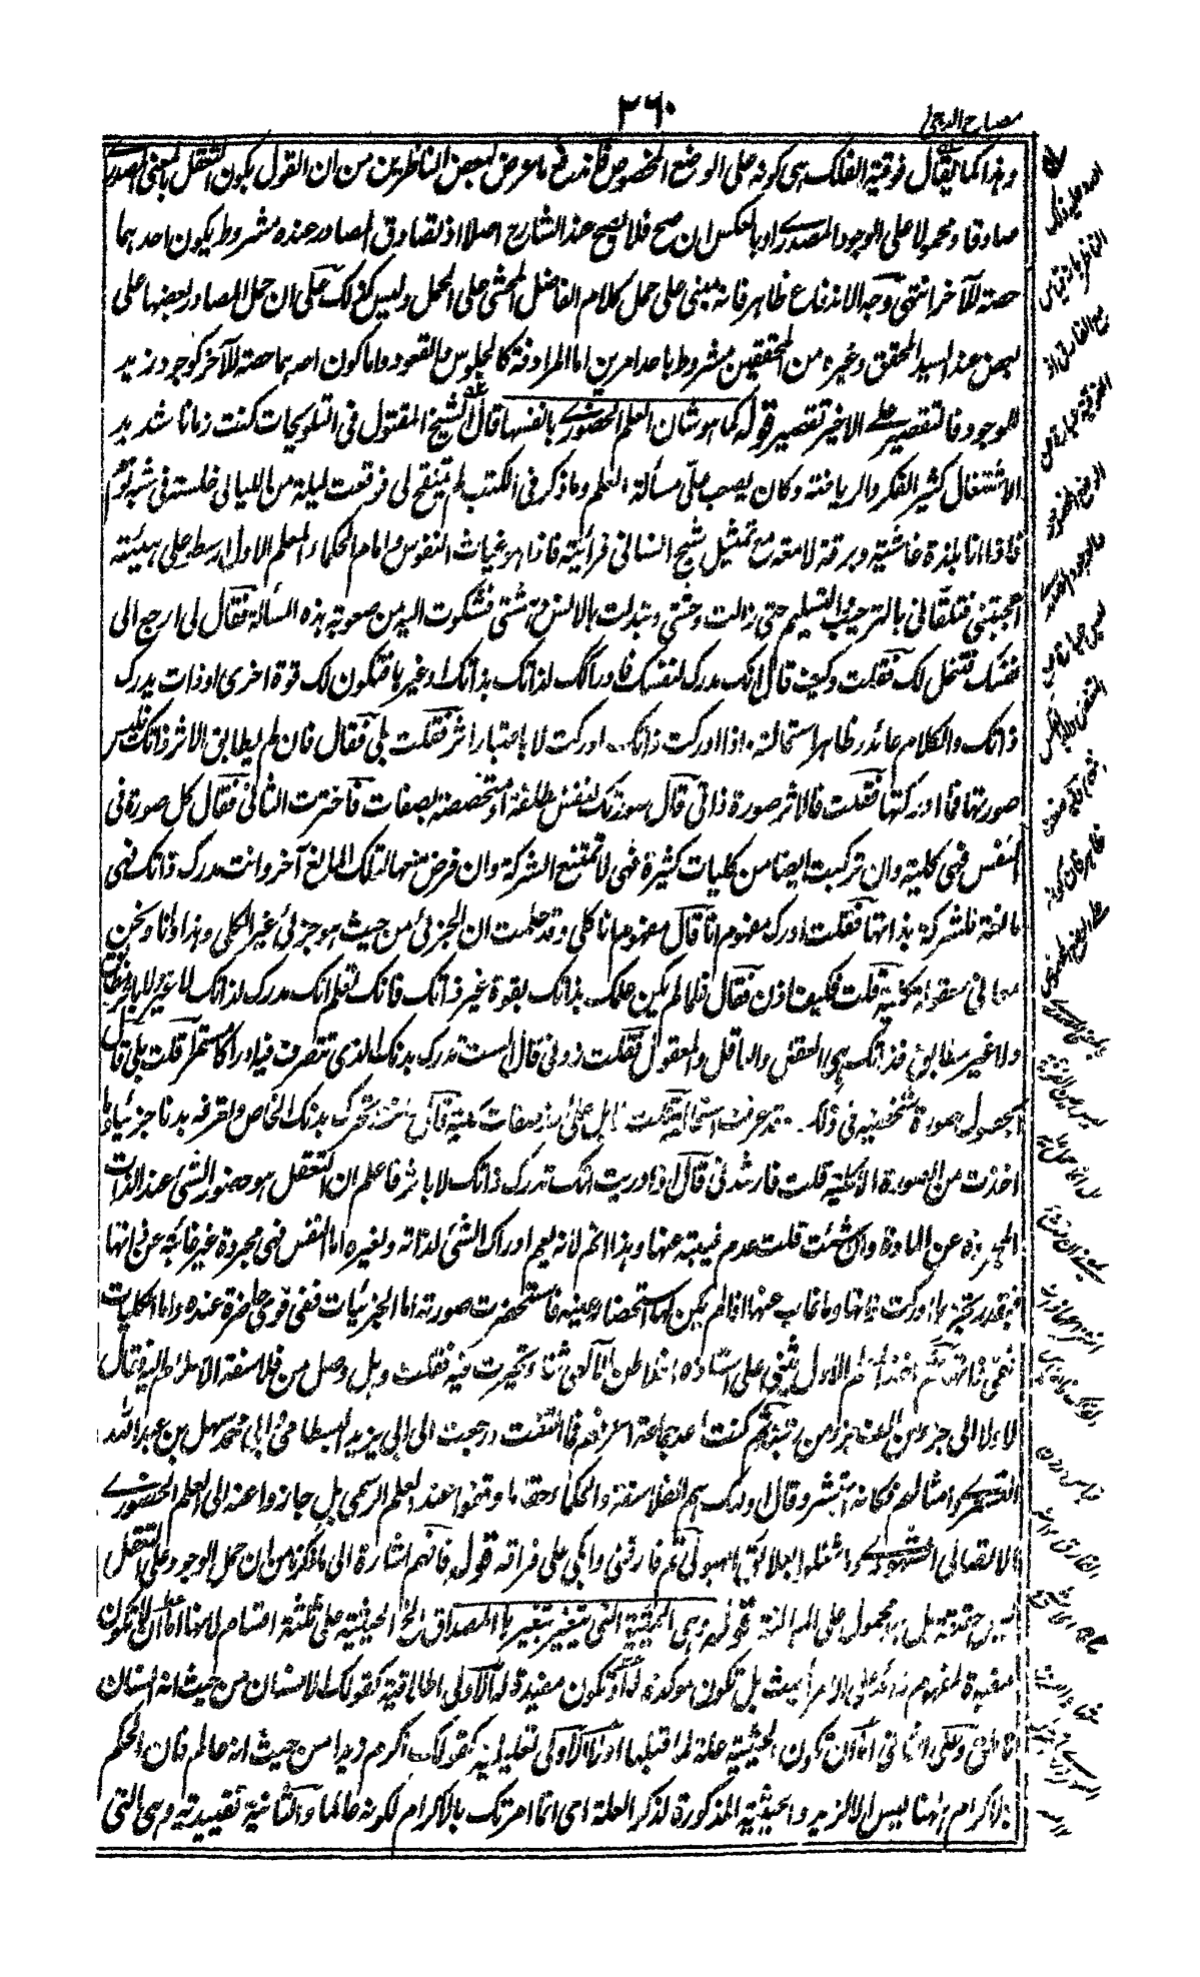 مصباح الدجى
٢٦٠
وهذا كما يقال فوقية الفلك هى كونه على الوضع المخصوص فاندفع ما عرض لبعض الناظرين من ان القول بكون التعقل بالمعنى المصدرى
صادقا ومحمولا على الوجود المصدرى او بالعكس ان صح فلا يصح عند الشارح اصلا اذ تصادق المصادر عنده مشروط بكون احدهما
حصة للآخر انتهى وجه الاندفاع ظاهر فانه مبنى على حمل كلام الفاضل المحشى على الحمل وليس كذلك على ان حمل المصادر بعضها على
بعض عند السيد المحقق وغيره من المحققين مشروط باحد امرين اما المرادفة كالجلوس والقعود واما كون احدهما حصة للآخر كوجود زيد
للوجود فالتقصير على الاخير تقصير قوله كما هو شان العلم الحضورى بانفسها قال الشيخ المقتول فى التلويحات كنت زمانا شديد
الاشتغال كثير الفكر والرياضة وكان يصعب على مسألة العلم وما ذكر فى الكتب لم يتنقح لى فوقعت ليلة من الليالى خلسته فى شبه نوم
فاذا انا بلذة غاشية وبرقة لامعة مع تمثيل شبح انسانى فرأيته فاذا هو غياث النفوس وامام الحكماء المعلم الاول ارسطو على هيئته
اعجبتنى فتلقانى بالترحيب والتسليم حتى زالت وحشتى وتبدلت بالانس دهشتى فشكوت اليه من صعوبة هذه المسألة فقال لى ارجع الى
نفسك فتنحل لك فقلت وكيف قال انك مدرك لنفسك فادراكك لذاتك بذاتك او غيرها فتكون لك قوة اخرى او ذات يدرك
ذاتك والكلام عائد وظاهر استحالته واذا ادركت ذاتك ادركت لا باعتبار اثر فقلت بلى فقال فان لم يطابق الاثر ذاتك فليس
صورتها فما ادركتها فقلت فالاثر صورة ذاتى قال صورتك لنفس مطلقة او متخصصة بصفات فاخترت الثانى فقال كل صورة فى
النفس فهى كلية وان تركبت ايضا من كليات كثيرة فهى لا تمتنع الشركة وان فرض منعها لتلك المانع آخر وانت مدرك ذاتك فهى
مانعة للشركة بذاتها فقلت ادرك مفهوم انا قال مفهوم انا كلى وقد علمت ان الجزئى من حيث هو جزئى غير الكلى وهذا وانا ونحن
معانى معقولة كلية قلت فكيف اذن فقال فلما لم يكن علمك بذاتك بقوة غير ذاتك فانك تعلم انك مدرك لذاتك لا غير ولا باثر مطابق
ولا غير مطابق فذاتك هى العقل والعاقل والمعقول فقلت زدنى قال الست تدرك بدنك الذى تتصرف فيه ادراكا مستمرا قلت بلى قال
بحصول صورة شخصية فى ذاتك وقد عرفت استحالته قلت بل على اخذ صفات كلية قال وانت تحرك بدنك الخاص وتعرفه بدنا جزئيا وما
اخذت من الصورة الكلية قلت فارشدنى قال اذا دريت انك تدرك ذاتك لا باثر فاعلم ان التعقل هو حضور الشئ عند الذات
المجردة عن المادة وان شئت قلت عدم غيبته عنها وهذا اتم لانه يعم ادراك الشئ لذاته ولغيره اما النفس فهى مجردة غير غائبة عن ذاتها
فبقدر تجردها ادركت ذاتها وما غاب عنها اذا لم يكن لها استحضار عينه فاستحضرت صورته اما الجزئيات ففى قوى حاضرة عنده واما الكليات
ففى ذاتها ثم اخذ المعلم الاول يثنى على استاذه افلاطن الالهى ثناء تحيرت فيه فقلت وهل وصل من فلاسفة الاسلام اليه فقال
لا ولا الى جزء من الف جزء من رتبته ثم كنت اعد جماعة اعرفهم فما التفت ورجعت الى ابى يزيد البسطامى وابى محمد سهل بن عبد الله
التسترى وامثالهم فكانه استبشر وقال اولئك هم الفلاسفة والحكماء حقا ما وقفوا عند العلم الرسمى بل جازوا عنه الى العلم الحضورى
والاتصالى الشهودى وما اشتغلوا بعلائق الهيولى ثم فارقنى وابكى على فراقه قوله فافهم اشارة الى ما ذكرنا من ان حمل الوجود على التعقل
ليس حقيقة بل هو محمول على المبالغة قوله وهى الحيثية التى يتغير بتغيرها المصداق الخ الحيثية على ثلثة اقسام لانها اما ان لا تكون
مفيدة لمفهوم زائد على الامر المحيث بل تكون موكدة له او تكون مفيدة له الاولى اطلاقية كقولك الانسان من حيث انه انسان
ناطق وعلى الثانى اما ان تكون الحيثية علة لما قبلها او لا الاولى تعليلية كقولك اكرم زيدا من حيث انه عالم فان الحكم
بالاكرام ههنا ليس الا لزيد والحيثية المذكورة لذكر العلة اى انما امرتك بالاكرام لكونه عالما والثانية تقييدية وهى التى